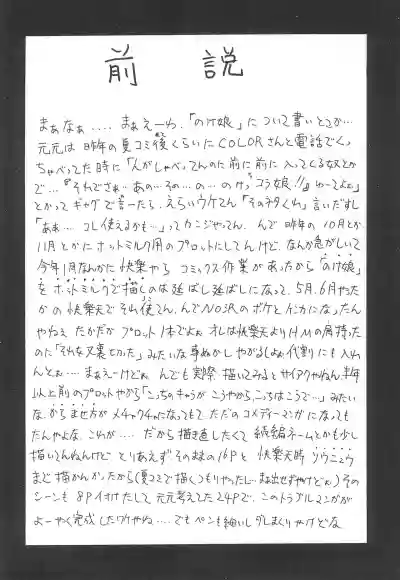 前説
まぁなぁ....まぁえーわ.「のけ娘」について書いとこか...
元元は昨年の夏コミ後くらいにCOLORさんと電話でくっ
ちゃべってた時に「人がしゃべってんのに前に前に入ってくる奴とか
で...『それでさぁ...あの...その...の...のけっコラ娘!!』ゆーてよぉ」
とかってギャグで言ーたら、えらいウケてん「そのネタくれ」言いだすし
「あぁ...コレ使えるかも...」ってカンジやってん. んで昨年の10月とか
11月とかにホットミルク用のプロットにしてんけど、なんか急がしいて
今年1月なんかに快楽やら コミックス作業があったから「のけ娘」
をホットミルクで描しのは延ばし延ばしになって、5月、6月やった
かの快楽天でそれ使てん. んでNOISRのボケとケンカになったん
やねぇ たかだかプロット1本でよぉ オレは快楽天よりHMの肩持った
のに「それな又裏切った」みたいな尊ぬかしやがるしよぉ代割にも入れ
んとぉ...まぁえーけどぉ んでも実際描いてみるとサイアクやねん. 半年
以上前のプロットやから「こっちのキャラがこうやから、こっちはこうで...」みたい
な、からませ方がメチャクチャになってもて、ただのコメディーマンガになっても
たんやよな. これが.... だから描き直したくて 続編ネームとかも少し
描いてんねんけど とりあえずそのままの16Pと 快楽天時 ソウニュウ
まで描かんかったから(夏コミで描くつもりやったし...まぁ出せずやけどぉ)その
シーンも 8P付けたして、元元考えてた24Pで、このトラブルマンガが
よーやく完成したワケやね....でもペンも細いし ダしまくりやけどな